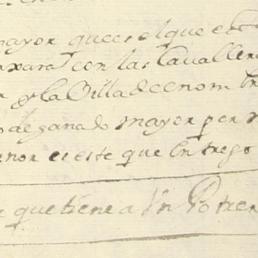 mayor que es el que est
con las Cavalle
y la Villa de nom
de ganado mayor por
menor es este que Entrego
que tiene a Un Potre